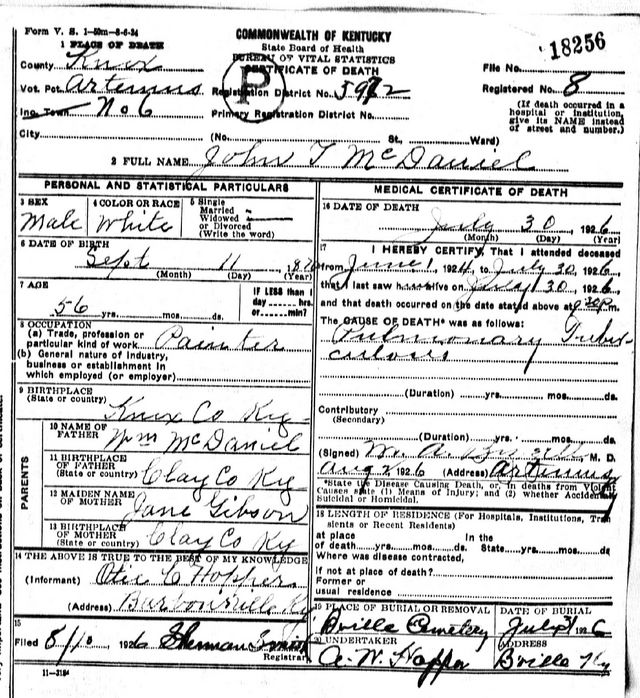 Form V. S. 1-50m-8-6-24
COMMONWEALTH OF KENTUCKY
State Board of Health
BUREAU OF VITAL STATISTICS
CERTIFICATE OF DEATH
18256
1 PLACE OF DEATH
County Knox
File No.
Vot. Pct. Artemus
P
Registration District No. 5972
Registered No. 8
Inc. Town No 6
Primary Registration District No.
(If death occurred in a hospital or institution, give its NAME instead of street and number.)
City (No. St., Ward)
2 FULL NAME John T McDaniel
PERSONAL AND STATISTICAL PARTICULARS
3 SEX Male
4 COLOR OR RACE White
5 Single Married Widowed or Divorced (Write the word)
6 DATE OF BIRTH
Sept 11
(Month) (Day) (Year)
7 AGE
56 yrs. mos. ds.
IF LESS than 1 day hrs. or min?
8 OCCUPATION
(a) Trade, profession or particular kind of work Painter
(b) General nature of industry, business or establishment in which employed (or employer)
9 BIRTHPLACE
(State or country) Knox Co Ky
PARENTS
10 NAME OF FATHER Wm McDaniel
11 BIRTHPLACE OF FATHER
(State or country) Clay Co Ky
12 MAIDEN NAME OF MOTHER Jane Gibson
13 BIRTHPLACE OF MOTHER
(State or country) Clay Co Ky
14 THE ABOVE IS TRUE TO THE BEST OF MY KNOWLEDGE
(Informant) Hopper
(Address) Barbourville Ky
15
Filed 1926 Sherman
Registrar
11-3184
MEDICAL CERTIFICATE OF DEATH
16 DATE OF DEATH
July 30, 1926
(Month) (Day) (Year)
17 I HEREBY CERTIFY, That I attended deceased
from June 1, 192 to July 30, 1926
that I last saw alive on July 30, 1926
and that death occurred on the date stated above at m.
The CAUSE OF DEATH* was as follows:
Pulmonary Tuber
culosis
(Duration) yrs. mos. ds.
Contributory
(Secondary)
(Duration) yrs. mos. ds.
(Signed) M. A. M. D.
Aug 2 1926 (Address) Artemus
*State the Disease Causing Death, or, in deaths from Violent
Causes state (1) Means of Injury; and (2) whether Accidental,
Suicidal or Homicidal.
18 LENGTH OF RESIDENCE (For Hospitals, Institutions, Tran
sients or Recent Residents)
at place In the
of death yrs. mos. ds. State yrs. mos. ds.
Where was disease contracted,
If not at place of death?
Former or
usual residence
19 PLACE OF BURIAL OR REMOVAL
Bville Cemetery
DATE OF BURIAL
July 31 1926
20 UNDERTAKER
A. W. Hopper
ADDRESS
Bville Ky